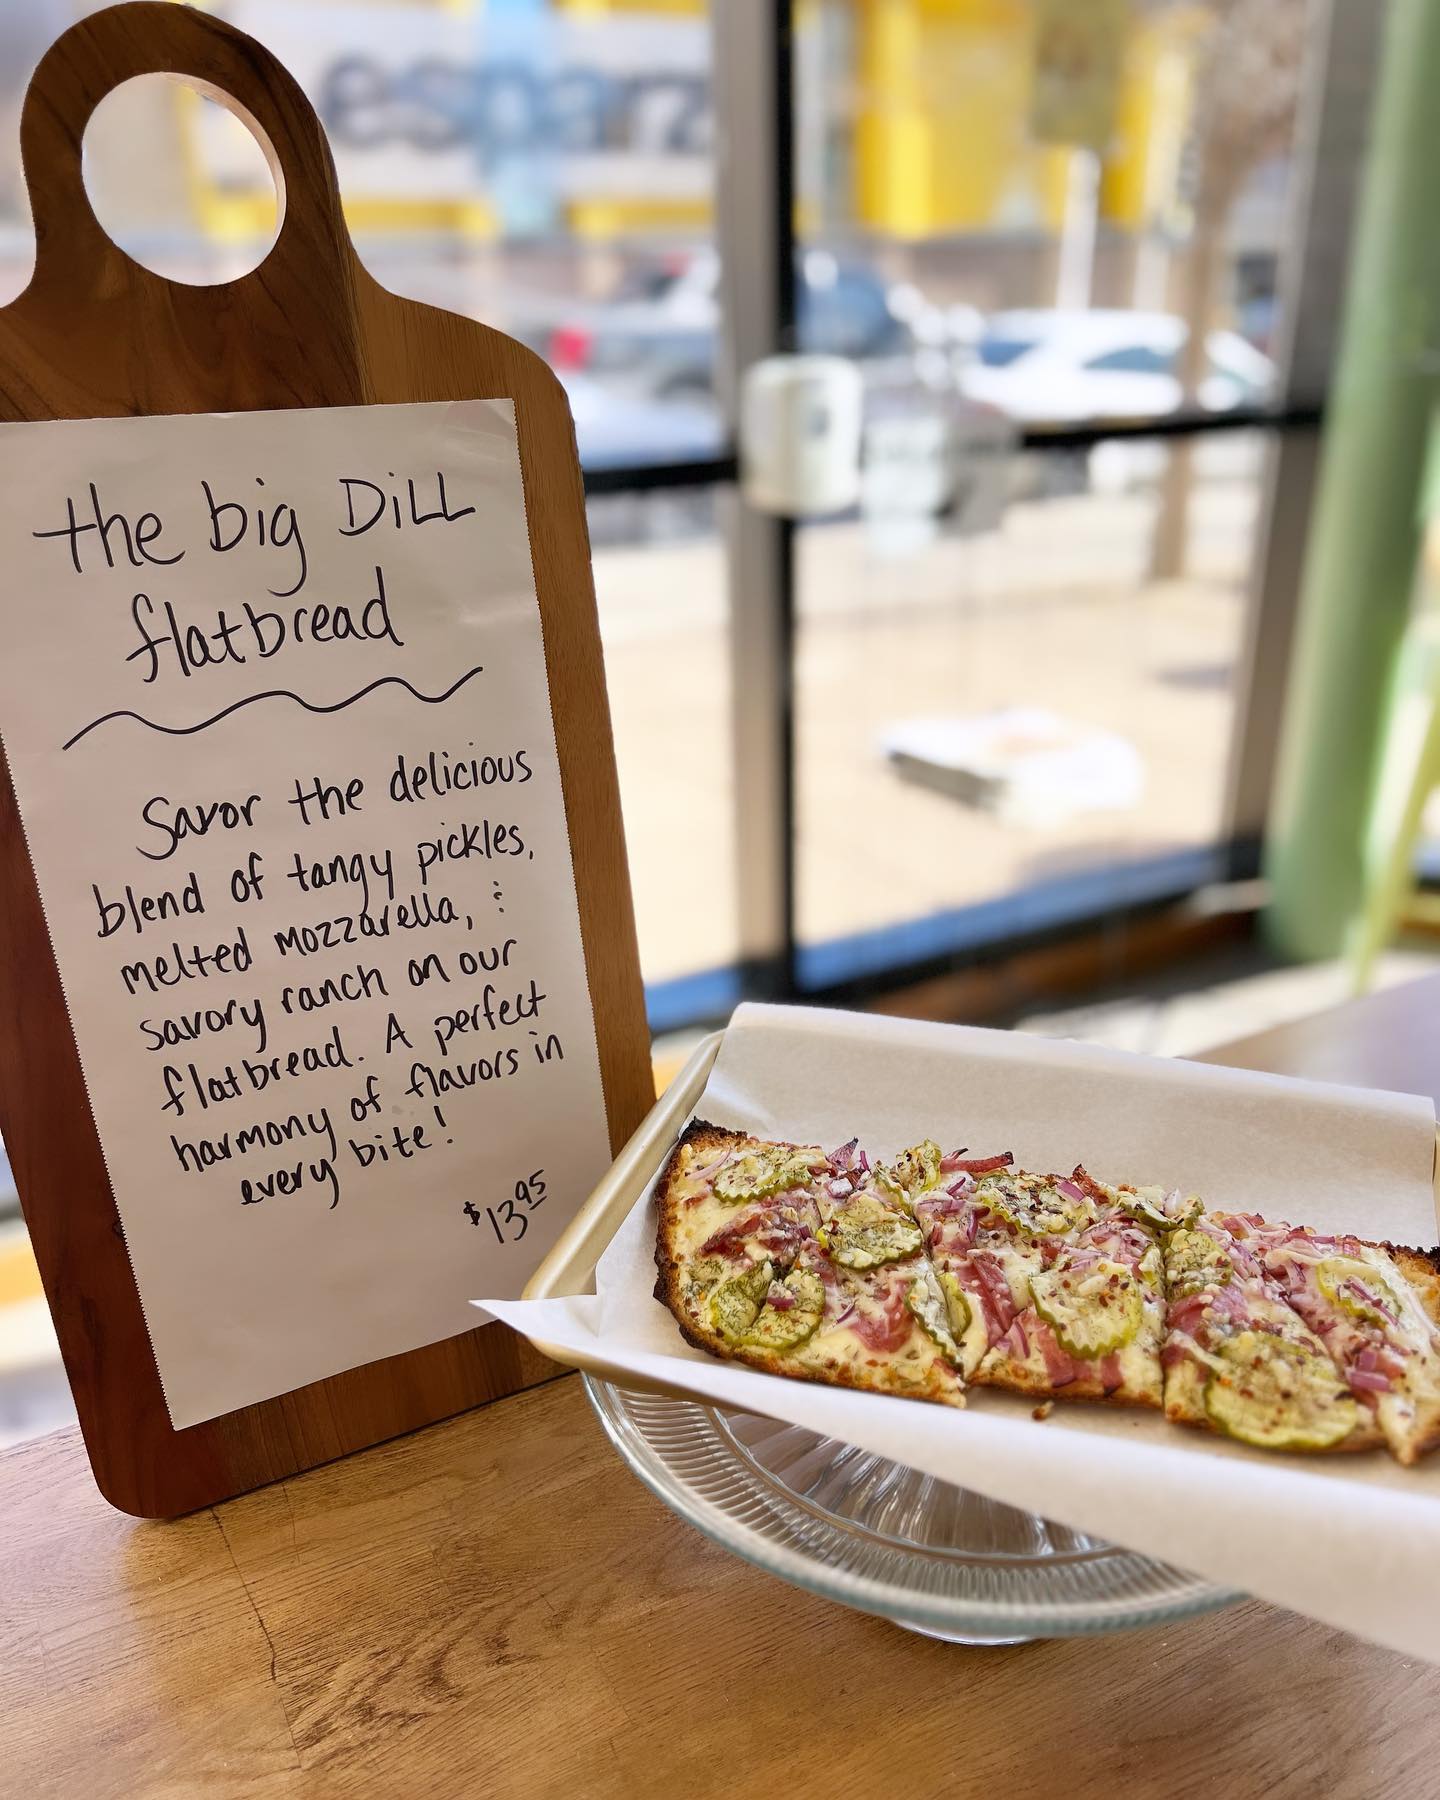 the big DiLL
flatbread
Savor the delicious
blend of tangy pickles,
melted mozzarella, &
savory ranch on our
flatbread. A perfect
harmony of flavors in
every bite!
$13.95